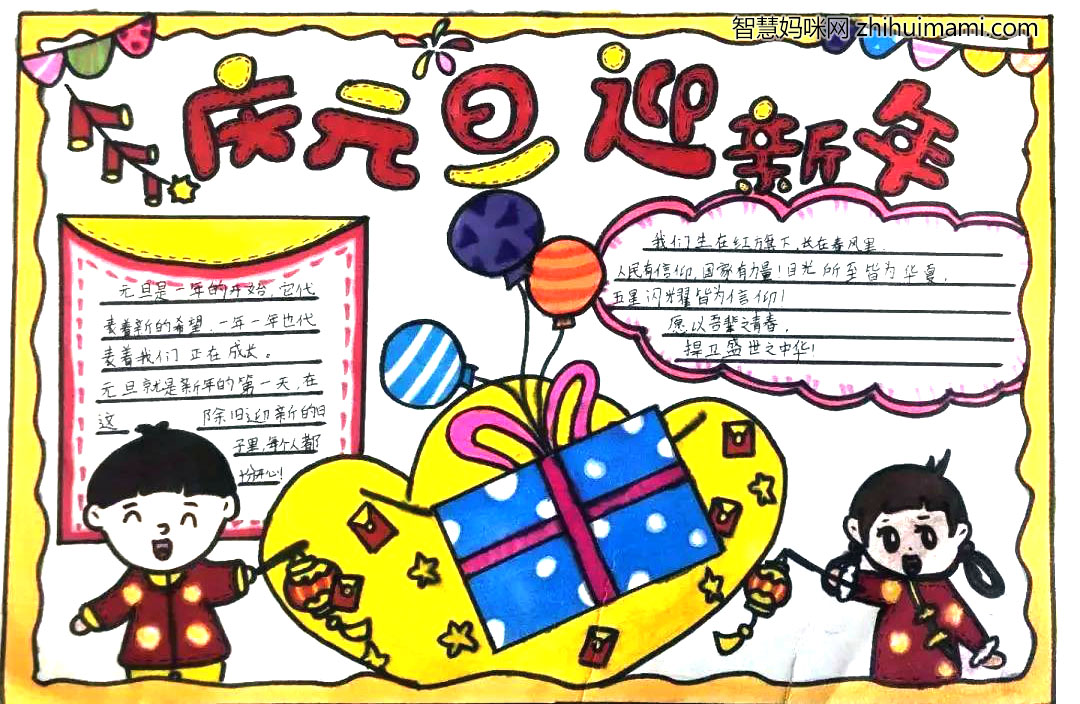 智慧妈咪网 zhihuimami.com
庆元旦迎新年
元旦是一年的开始，它代
表着新的希望，一年一年也代
表着我们正在成长。
元旦就是新年的第一天，在
这 除旧迎新的日
子里，每个人都
十分开心！
我们生在红旗下，长在春风里，
人民有信仰，国家有力量！目光所至皆为华夏，
五星闪耀皆为信仰！
愿以吾辈之青春，
捍卫盛世之中华！